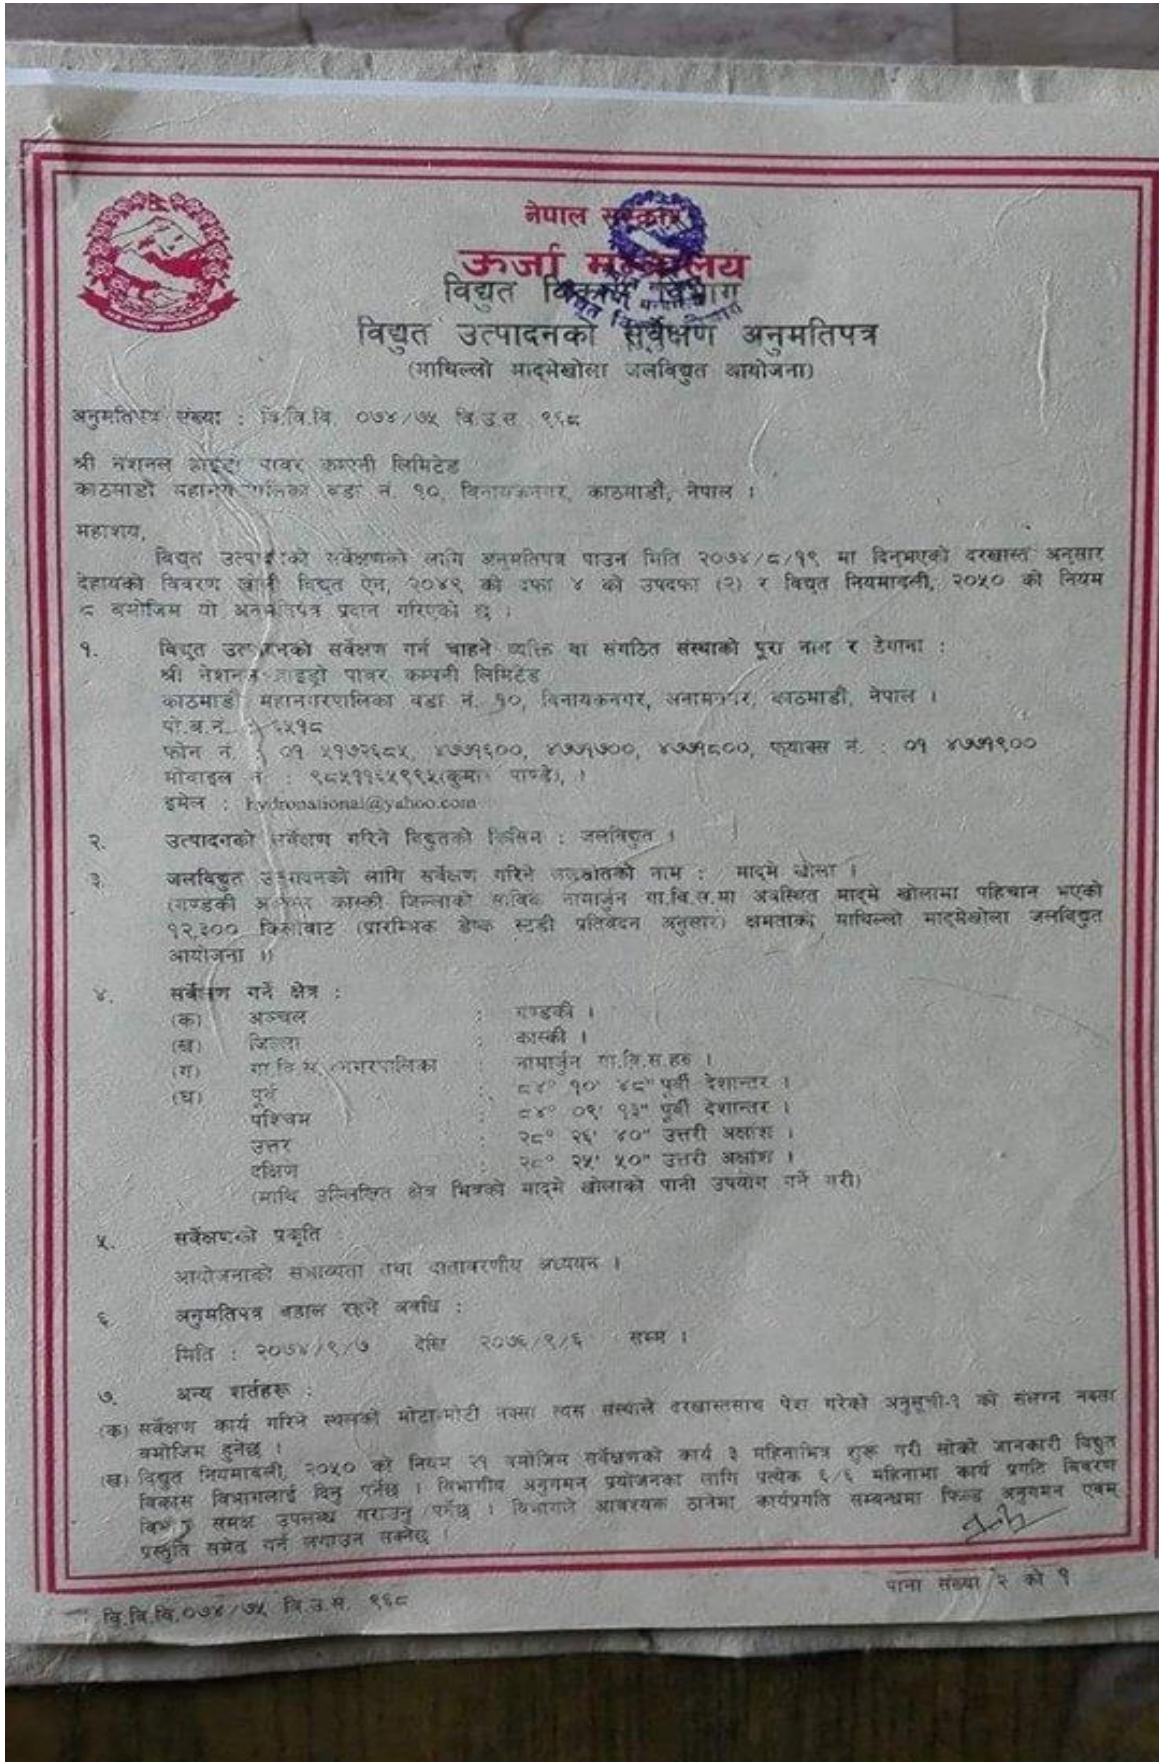 नेपाल सरकार
ऊर्जा मन्त्रालय
विद्युत विकास विभाग
विद्युत उत्पादनको सर्वेक्षण अनुमतिपत्र
(माथिल्लो माद्मेखोला जलविद्युत आयोजना)
अनुमतिपत्र संख्या : वि.वि.वि. ०७४/७५ वि.उ.स. ९६८
श्री नेशनल हाइड्रो पावर कम्पनी लिमिटेड
काठमाडौं महानगरपालिका वडा नं. १०, विनायकनगर, काठमाडौं, नेपाल ।
महाशय,
विद्युत उत्पादनको सर्वेक्षणको लागि अनुमतिपत्र पाउन मिति २०७४/८/१९ मा दिनुभएको दरखास्त अनुसार
देहायको विवरण खोली विद्युत ऐन, २०४९ को दफा ४ को उपदफा (२) र विद्युत नियमावली, २०५० को नियम
८ बमोजिम यो अनुमतिपत्र प्रदान गरिएको छ ।
१. विद्युत उत्पादनको सर्वेक्षण गर्न चाहने व्यक्ति वा संगठित संस्थाको पूरा नाम र ठेगाना :
श्री नेशनल हाइड्रो पावर कम्पनी लिमिटेड
काठमाडौं महानगरपालिका वडा नं. १०, विनायकनगर, अनामनगर, काठमाडौं, नेपाल ।
पो.ब.नं. :
फोन नं. : ०१ ५१७२६८५, ४७७१६००, ४७७१७००, ४७७१८००, फ्याक्स नं. : ०१ ४७७१९००
मोबाइल नं. : ९८५११६५९९५(कुमार पाण्डे), ।
इमेल : hydronational@yahoo.com
२. उत्पादनको सर्वेक्षण गरिने विद्युतको किसिम : जलविद्युत ।
३. जलविद्युत उत्पादनको लागि सर्वेक्षण गरिने जलस्रोतको नाम : माद्मे खोला ।
(गण्डकी अञ्चल कास्की जिल्लाको साविक नामार्जुन गा.वि.स.मा अवस्थित माद्मे खोलामा पहिचान भएको
१२,३०० किलोवाट (प्रारम्भिक डेष्क स्टडी प्रतिवेदन अनुसार) क्षमताको माथिल्लो माद्मेखोला जलविद्युत
आयोजना ।)
४. सर्वेक्षण गर्ने क्षेत्र :
(क) अञ्चल : गण्डकी ।
(ख) जिल्ला : कास्की ।
(ग) गा.वि.स./नगरपालिका : नामार्जुन गा.वि.स.हरु ।
(घ) पूर्व : ८४° १०' ४८" पूर्वी देशान्तर ।
पश्चिम : ८४° ०९' १३" पूर्वी देशान्तर ।
उत्तर : २८° २६' ४०" उत्तरी अक्षांश ।
दक्षिण : २८° २५' ५०" उत्तरी अक्षांश ।
(माथि उल्लिखित क्षेत्र भित्रको माद्मे खोलाको पानी उपयोग गर्ने गरी)
५. सर्वेक्षणको प्रकृति :
आयोजनाको सम्भाव्यता तथा वातावरणीय अध्ययन ।
६. अनुमतिपत्र बहाल रहने अवधि :
मिति : २०७४/९/७ देखि २०७६/९/६ सम्म ।
७. अन्य शर्तहरू :
(क) सर्वेक्षण कार्य गरिने स्थलको मोटा-मोटी नक्सा त्यस संस्थाले दरखास्तसाथ पेश गरेको अनुसूची-१ को संलग्न नक्सा
बमोजिम हुनेछ ।
(ख) विद्युत नियमावली, २०५० को नियम २१ बमोजिम सर्वेक्षणको कार्य ३ महिनाभित्र शुरू गरी सोको जानकारी विद्युत
विकास विभागलाई दिनु पर्नेछ । विभागीय अनुगमन प्रयोजनका लागि प्रत्येक ६/६ महिनामा कार्य प्रगति विवरण
विभाग समक्ष उपलब्ध गराउनु पर्नेछ । विभागले आवश्यक ठानेमा कार्यप्रगति सम्बन्धमा फिल्ड अनुगमन एवम्
प्रस्तुति समेत गर्न लगाउन सक्नेछ ।
पाना संख्या २ को १
वि.वि.वि.०७४/७५ वि.उ.स. ९६८